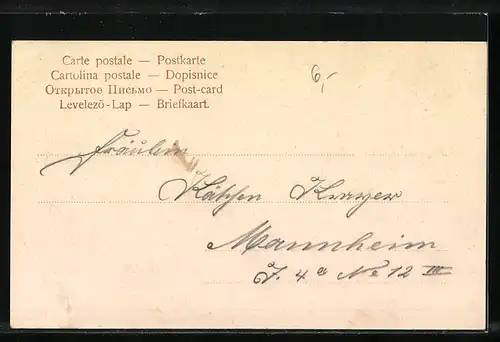 Carte postale — Postkarte
Cartolina postale — Dopisnice
Открытое Письмо — Post-card
Levelező-Lap — Briefkaart.
6,-
Fräulein
Käthen Krayer
Mannheim
J. 4 a No 12 III